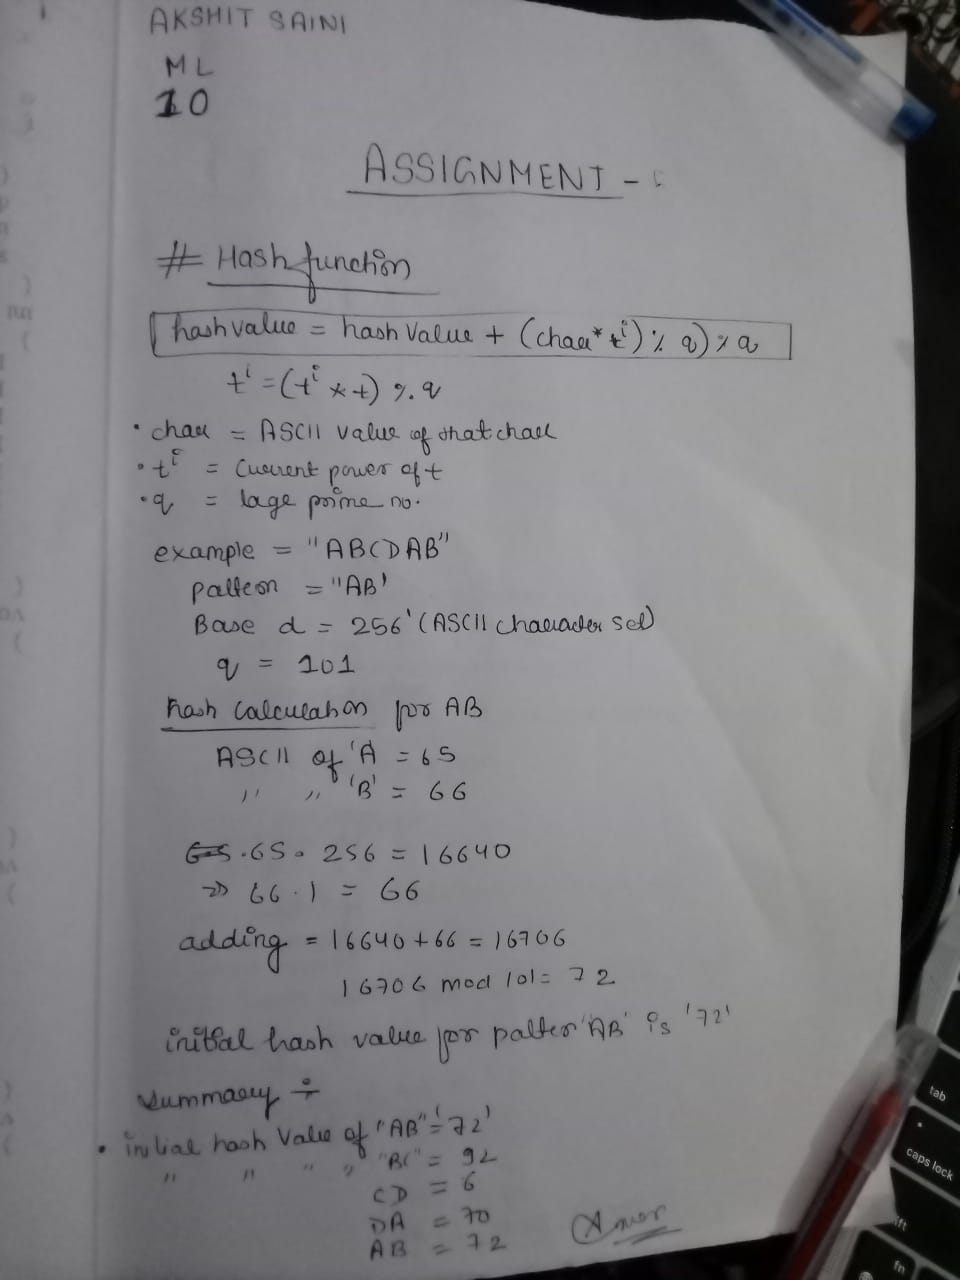 AKSHIT SAINI
ML
10
ASSIGNMENT -
# Hash function
hashvalue = hash Value + (char * tⁱ) % q) % q
tⁱ = (tⁱ * t) % q
• char = ASCII value of that char
• tⁱ = Current power of t
• q = lage prime no.
example = "ABCDAB"
pattern = "AB'
Base d = 256' (ASCII character set)
q = 101
hash calculation for AB
ASCII of 'A = 65
" " 'B' = 66
.65. 256 = 16640
=> 66.1 = 66
adding = 16640 + 66 = 16706
16706 mod 101 = 72
initial hash value for patter 'AB' is '72'
summary ÷
• initial hash value of "AB" = '72'
" " " " "BC" = 92
CD = 6
DA = 70
AB = 72
tab
caps lock
ft
fn